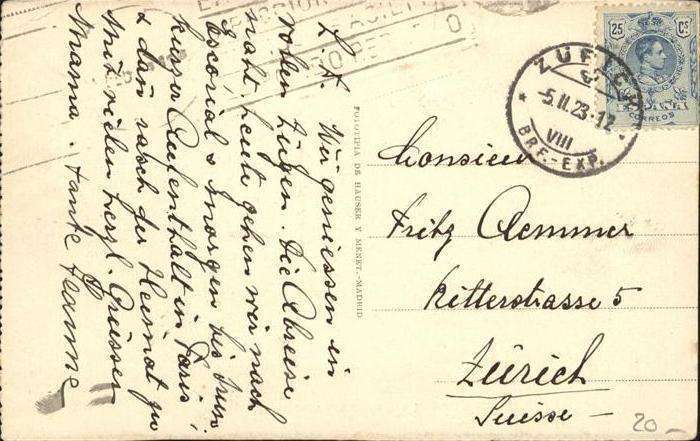 L. F. Wir geniessen in
vollen Zügen. Die Abreise
naht, heute gehen wir nach
Escorial & morgen bis Irun
kurzer Aufenthalt in Paris
& dann rasch der Heimat zu
Mit vielen herzl. Grüssen
Mama. Tante
FOTOTIPIA DE HAUSER Y MENET.-MADRID
25 Cs
CORREOS
ZÜRICH
-5.II.23-12
VIII
BRF.-EXP.
Monsieur
Fritz Aemmer
Ritterstrasse 5
Zürich
Suisse
20 -